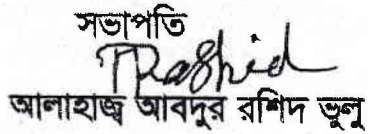 সভাপতি
Rashid
আলাহাজ্ব আবদুর রশিদ ভুলু